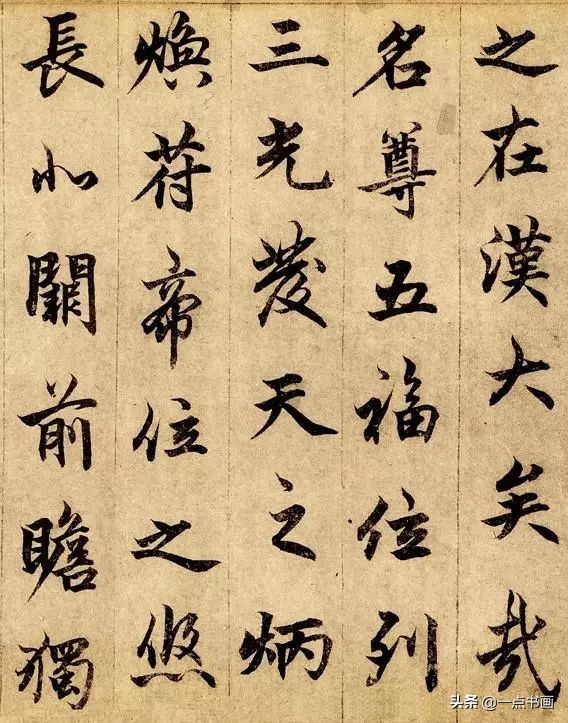 之在漢大矣哉
名尊五福位列
三光發天之炳
煥荷帝位之悠
長北闕前瞻獨
头条 @一点书画